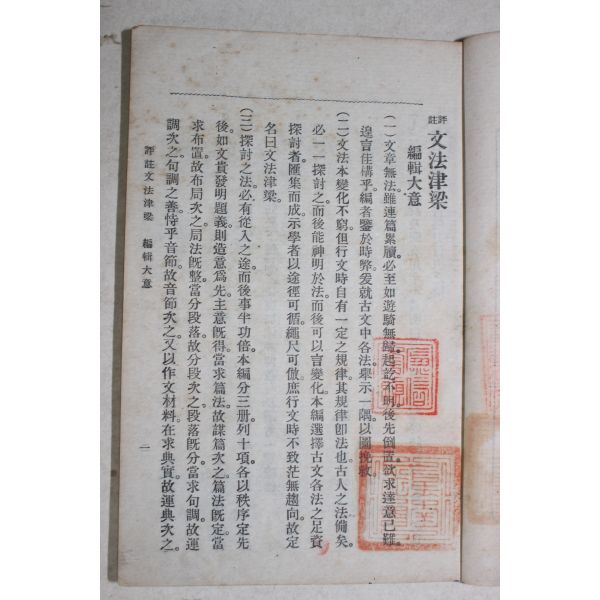 評註 文法津梁
編輯大意
(一)文章無法。雖連篇累牘。必至如遊騎無歸。起訖不明。後先倒置。欲求達意已難。
遑言佳構乎。編者鑒於時弊。爰就古文中各法。舉示一隅。以圖挽救。
(二)文法本變化不窮。但行文時自有一定之規律。其規律卽法也。古人之法備矣。
必一一探討之。而後能神明於法。而後可以言變化。本編選擇古文各法之足資
探討者。匯集而成。示學者以途徑可循。繩尺可倣。庶行文時不致茫無趨向。故定
名曰文法津梁。
(三)探討之法。必有從入之途。而後事半功倍。本編分三册。列十項。各以秩序定先
後。如文貴發明題義。則造意爲先。主意既得。當求篇法。故謀篇次之。篇法既定。當
求布置。故布局次之。局法既整。當分段落。故分段次之。段落既分。當求句調。故運
調次之。句調之善。恃乎音節。故音節次之。又以作文材料。在求典實。故運典次之。
評註文法津梁 編輯大意
一